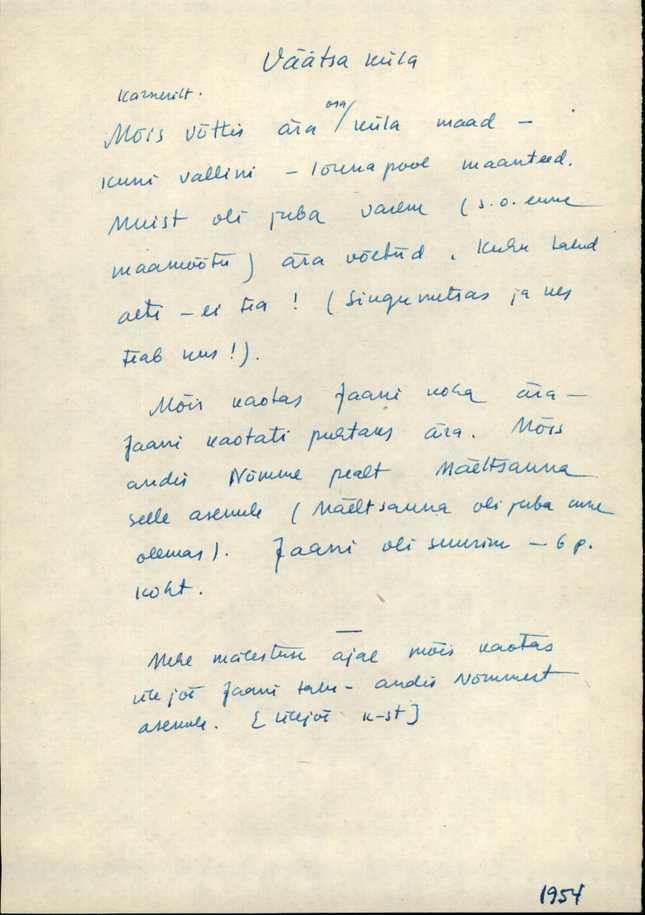 Väätsa küla
Karnerilt.
Mõis võttis ära osa/küla maad –
kuni vallini – lõuna pool maanteed.
Muist oli juba varem (s.o. enne
maamõõtu) ära võetud. Kuhu talud
aeti – ei tea! ( ja kes
teab kus!).
Mõis kaotas Jaani koha ära –
Jaani kaotati puhtaks ära. Mõis
andis Nõmme pealt Mäeltsauna
selle asemele (Mäeltsauna oli juba enne
olemas). Jaani oli suurim – 6 p.
koht.
Mehe mälestuse ajal mõis kaotas
ülejõe Jaani talu – andis Nõmmest
asemele. [Ülejõe k-st]
1954